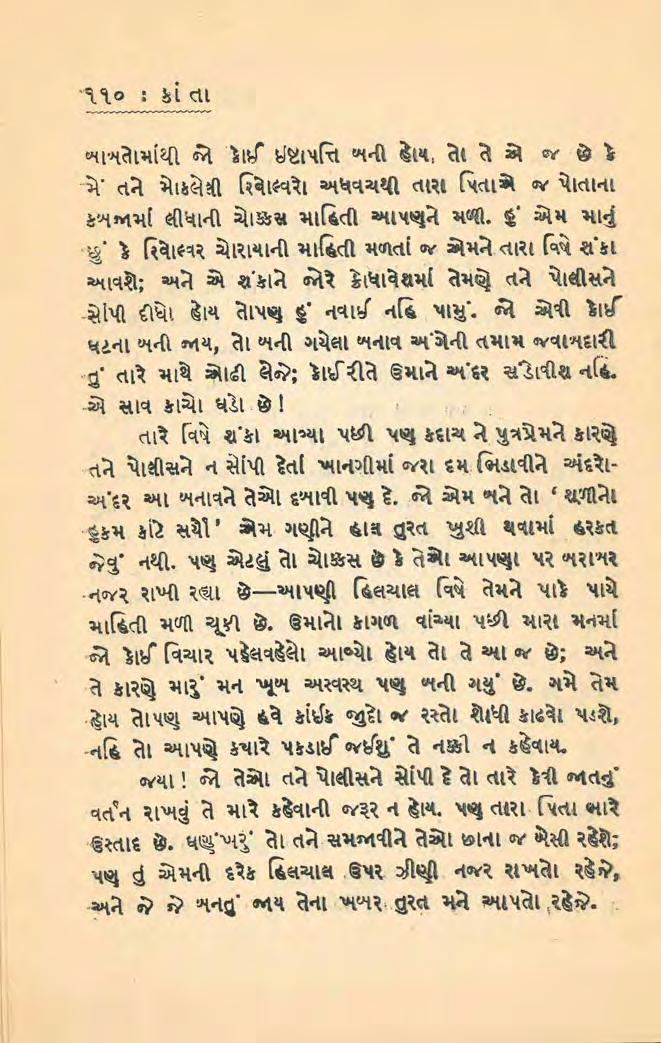 ૧૧૦ : કાંતા
બાબતોમાંથી જો કોઈ ઈષ્ટાપત્તિ બની હોય, તો તે એ જ છે કે
મેં તને મોકલેલી રિવોલ્વરો અધવચથી તારા પિતાએ જ પોતાના
કબજામાં લીધાની ચોક્કસ માહિતી આપણને મળી. હું એમ માનું
છું કે રિવોલ્વર ચોરાયાની માહિતી મળતાં જ એમને તારા વિષે શંકા
આવશે; અને એ શંકાને જોરે ક્રોધાવેશમાં તેમણે તને પોલીસને
સોંપી દીધો હોય તોપણ હું નવાઈ નહિ પામું. જો એવી કોઈ
ઘટના બની જાય, તો બની ગયેલા બનાવ અંગેની તમામ જવાબદારી
તું તારે માથે ઓઢી લેજે; કોઈ રીતે ઉમાને અંદર સંડોવીશ નહિ.
એ સાવ કાચો ઘડો છે!
તારે વિષે શંકા આવ્યા પછી પણ કદાચ ને પુત્રપ્રેમને કારણે
તને પોલીસને ન સોંપી દેતાં ખાનગીમાં જરા દમ ભિડાવીને અંદરો-
અંદર આ બનાવને તેઓ દબાવી પણ દે. જો એમ બને તો ‘શૂળીનો
હુકમ કાંટે સર્યો’ એમ ગણીને હાલ તુરત ખુશી થવામાં હરકત
જેવું નથી. પણ એટલું તો ચોક્કસ છે કે તેઓ આપણા પર બરાબર
નજર રાખી રહ્યા છે—આપણી હિલચાલ વિષે તેમને પાકે પાયે
માહિતી મળી ચૂકી છે. ઉમાનો કાગળ વાંચ્યા પછી મારા મનમાં
જો કોઈ વિચાર પહેલવહેલો આવ્યો હોય તો તે આ જ છે; અને
તે કારણે મારું મન ખૂબ અસ્વસ્થ પણ બની ગયું છે. ગમે તેમ
હોય તોપણ આપણે હવે કાંઈક જુદો જ રસ્તો શોધી કાઢવો પડશે,
નહિ તો આપણે ક્યારે પકડાઈ જઈશું તે નક્કી ન કહેવાય.
જયા! જો તેઓ તને પોલીસને સોંપી દે તો તારે કેવી જાતનું
વર્તન રાખવું તે મારે કહેવાની જરૂર ન હોય. પણ તારા પિતા ભારે
ઉસ્તાદ છે. ઘણુંખરું તો તને સમજાવીને તેઓ છાના જ બેસી રહેશે;
પણ તું એમની દરેક હિલચાલ ઉપર ઝીણી નજર રાખતો રહેજે,
અને જે જે બનતું જાય તેના ખબર તુરત મને આપતો રહેજે.